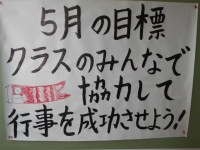 5月の目標
クラスのみんなで
協力して
行事を成功させよう!